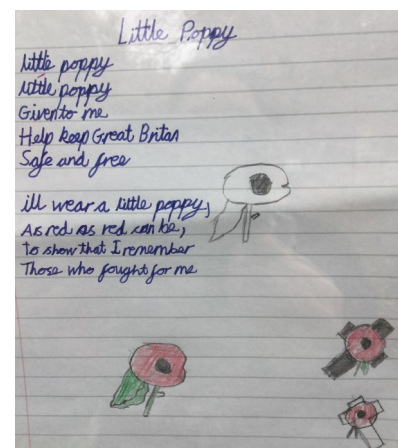 Little Poppy
little poppy
little poppy
Given to me
Help keep Great Britan
Safe and free
ill wear a little poppy,
As red as red can be,
to show that I remember
Those who fought for me